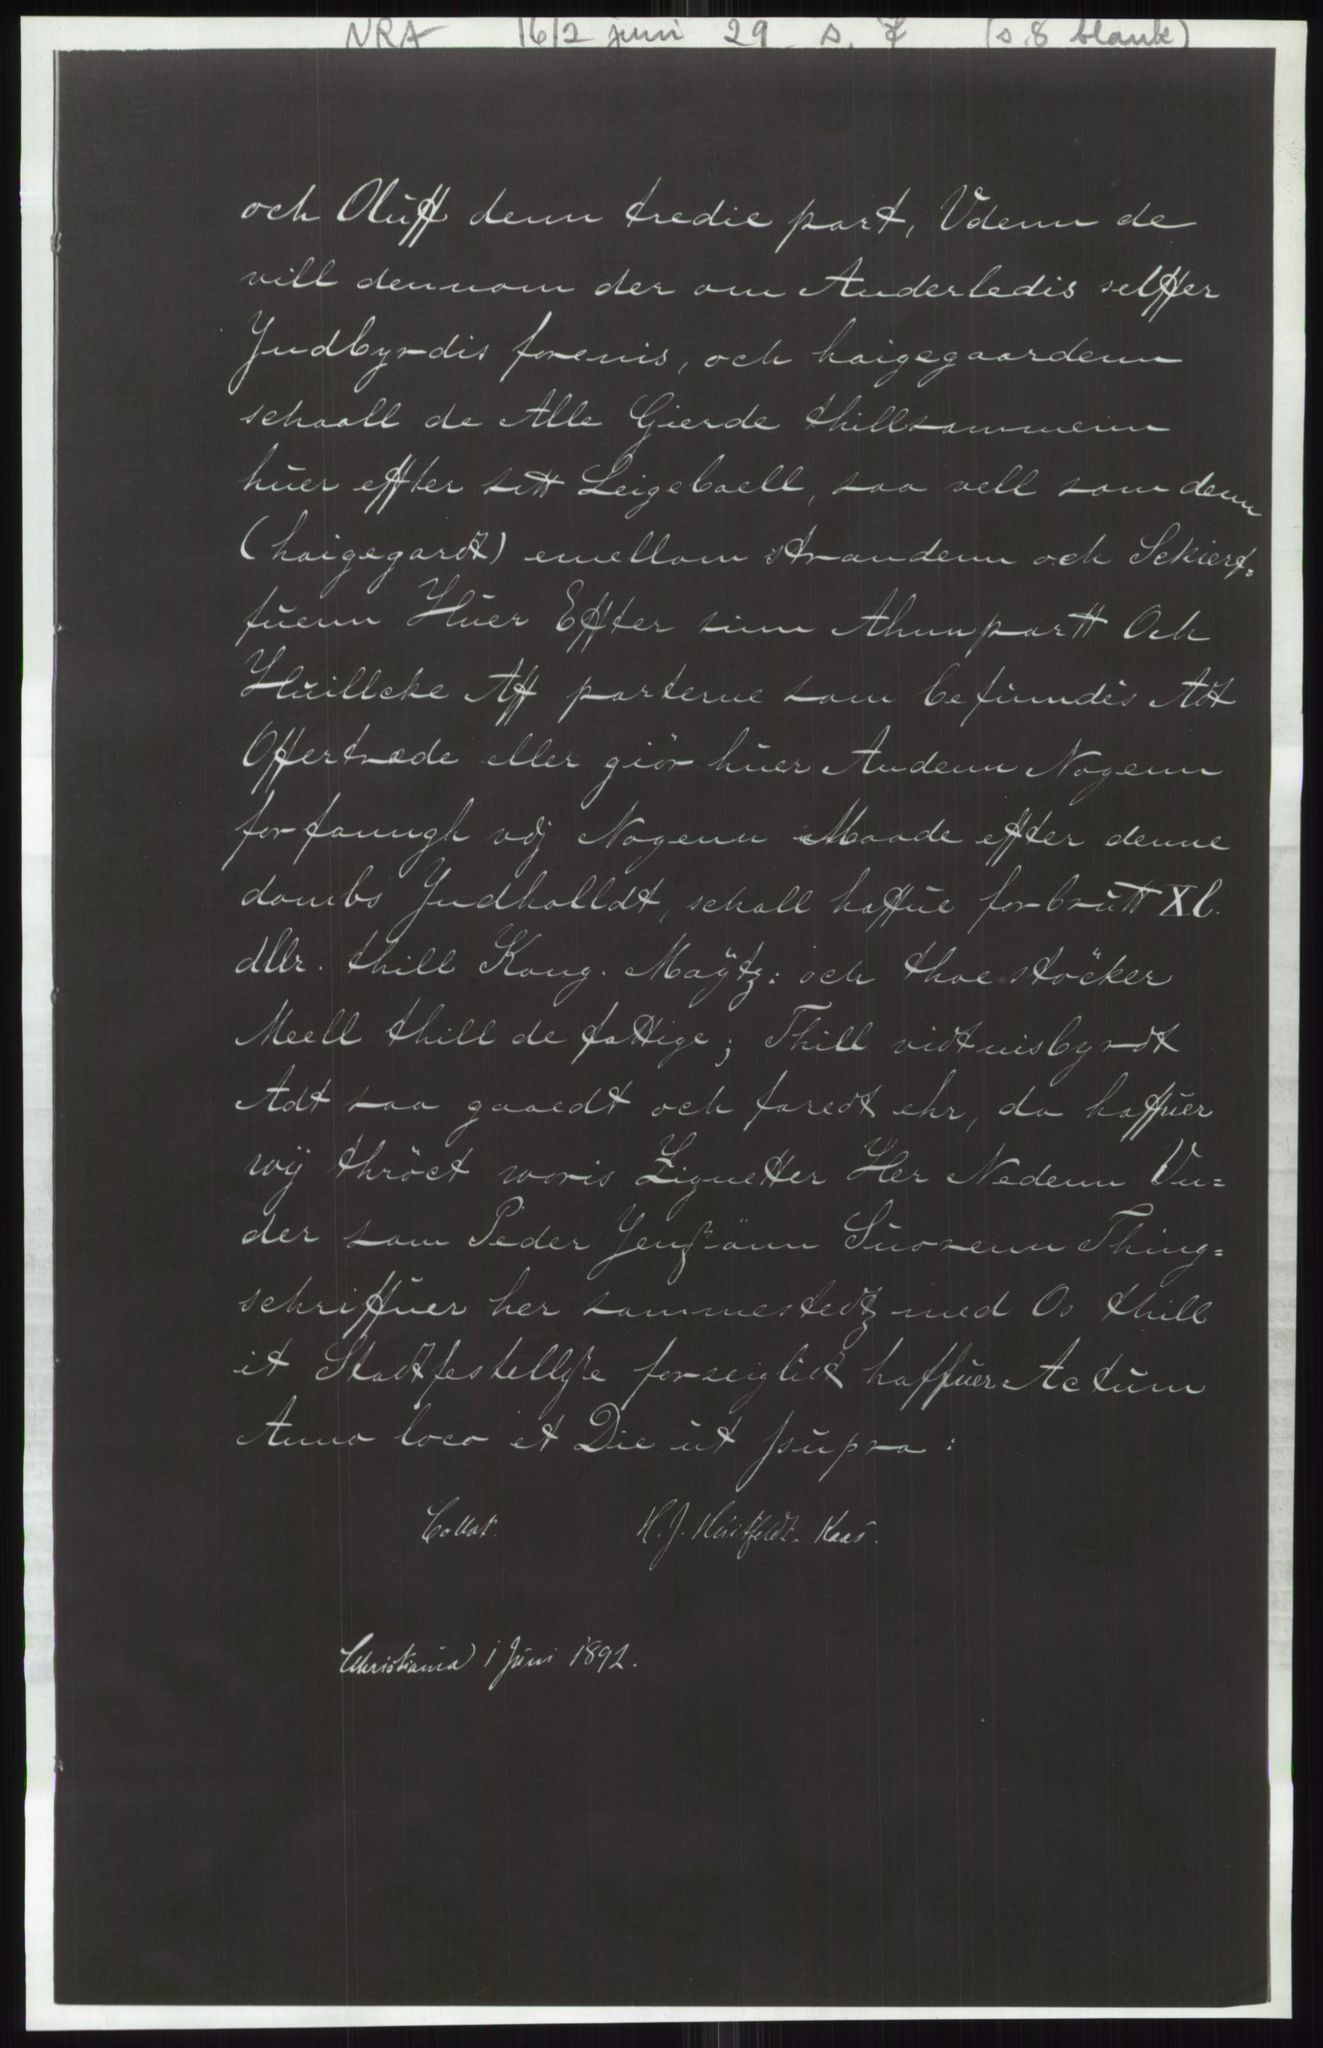 NRA 1612 juni 29 s. 7 (s. 8 blank)
och Oluff denn tredie part, Vdenn de
vill dennom der om Anderledis selffer
Jndbyrdis forenis, och haigegaardenn
schaall de Alle Gierde thillsammenn
huer effter sitt Leigebaell, saa vell som denn
(haigegardt) emellom strandenn och Sckierf-
fuenn Huer Effter sinn Ahnnpartt Och
Huillcke Aff parterne som befinndis Adt
Offertræde eller giör huer Andenn Nogenn
forfanngh vdj Nogenn Maade effter denne
dombs Jndholldt, schall haffue forbrutt XL.
dllr. thill Kong. Maÿtz: och thoe stöcker
Meell thill de fattige; Thill vidtnisbyrdt
Adt saa gaaedt och faredt ehr, da haffuer
wÿ thröct woris Zignetter Her Nedenn Vn=
der som Peder Jenßönn Suorenn Thing=
schriffuer her sammestedtz med Os thill
it Stadtfestellße forseiglidt haffuer Actum
Anno loco et Die ut supra:
Collat. H. J. Huitfeldt-Kaas.
Christiania 1 Juni 1892.